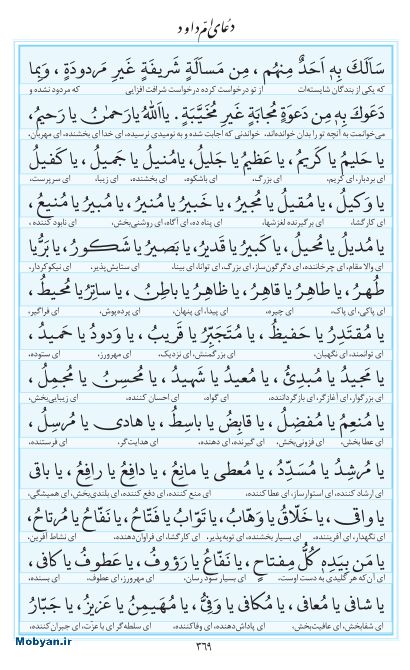 دعای امّ داود
سَاَلَكَ بِهِ اَحَدٌ مِنهُم ، مِن مَسـاَلَةٍ شَریفَةٍ غَیرِ مَردودَةٍ ، وَبِما
که یکی از بندگان شایسته‌ات از تو درخواست کرده درخواست شرافت افزایی که مردود نشده و
دَعَوكَ بِهِ مِن دَعوَةٍ مُجابَةٍ غَیرِ مُخَیَّبَةٍ . یااَللهُ یارَحمٰنُ یا رَحیمُ ،
می‌خوانمت به آنچه تو را بدان خوانده‌اند، خواندنی که اجابت شده و به نومیدی نرسیده، ای خدا ای بخشنده، ای مهربان،
یا حَلیمُ یا کَریمُ ، یا عَظیمُ یا جَلیلُ، یامُنیلُ یا جَمیلُ ، یا کَفیلُ
ای بردبار، ای کریم، ای بزرگ، ای باشکوه، ای بخشنده، ای زیبا، ای سرپرست،
یا وَکیلُ ، یا مُقیلُ یا مُجیرُ ، یا خَبیرُ یا مُنیرُ ، یا مُبیرُ یا مَنیعُ ،
ای کارگشا، ای برگیرنده لغزشها، ای پناه ده، ای آگاه، ای روشنی‌بخش، ای نابود کننده ،
یا مُدیلُ یا مُحیلُ ، یا کَبیرُ یا قَدیرُ ، یا بَصیرُ یا شَکورُ ، یا بَرُّ یا
ای والا مقام، ای چرخاننده، ای دگرگون‌ساز، ای بزرگ، ای توانا، ای بینا، ای ستایش‌پذیر، ای نیکو کردار،
طُهرُ ، یا طاهِرُ یا قاهِرُ ، یا ظاهِرُ یا باطِنُ ، یا ساتِرُ یا مُحیطُ ،
ای پاکی، ای پاک، ای چیره، ای پیدا، ای پنهان، ای پرده‌پوش، ای فراگیر،
یا مُقتَدِرُ یا حَفیظُ ، یا مُتَجَبِّرُ یا قَریبُ ، یا وَدودُ یا حَمیدُ ،
ای توانمند، ای نگهبان، ای بزرگ‌منش، ای نزدیک، ای مهرورز، ای ستوده،
یا مَجیدُ یا مُبدِئُ ، یا مُعیدُ یا شَهیدُ ، یا مُحسِنُ یا مُجمِلُ ،
ای بزرگوار، ای آغازگر، ای بازگرداننده، ای گواه، ای احسان کننده، ای زیبایی‌بخش،
یا مُنعِمُ یا مُفضِلُ ، یا قابِضُ یا باسِطُ ، یا هادی یا مُرسِلُ ،
ای عطا بخش، ای فزونی‌بخش، ای گیرنده، ای دهنده، ای هدایت‌گر، ای فرستنده،
یا مُرشِدُ یا مُسَدِّدُ ، یا مُعطی یا مانِعُ ، یا دافِعُ یا رافِعُ ، یا باقی
ای ارشاد کننده، ای استوارساز، ای عطا کننده، ای منع کننده، ای دفع کننده، ای بلندی‌بخش، ای همیشگی،
یا واقی ، یا خَلّاقُ یا وَهّابُ ، یا تَوّابُ یا فَتّاحُ ، یا نَفّاحُ یا مُرتاحُ،
ای نگهدار، ای آفریننده، ای بسیار بخشنده، ای توبه‌پذیر، ای کارگشا، ای فراوان‌دهنده، ای نشاط آفرین،
یا مَن بِیَدِهِ کُلُّ مِفتاحٍ ، یا نَفّاعُ یا رَؤوفُ ، یا عَطوفُ یا کافی ،
ای آن‌که هر گلیدی به دست اوست، ای بسیار سود رسان، ای مهرورز، ای عطوف، ای بسنده،
یا شافی یا مُعافی ، یا مُکافی یا وَفِیُّ ، یا مُهَیمِنُ یا عَزیزُ ، یا جَبّارُ
ای شفابخش، ای عافیت‌بخش، ای پاداش‌دهنده، ای وفاکننده، ای سلطه‌گر ای با عزت، ای جبران‌کننده،
۳۶۹
Mobyan.ir